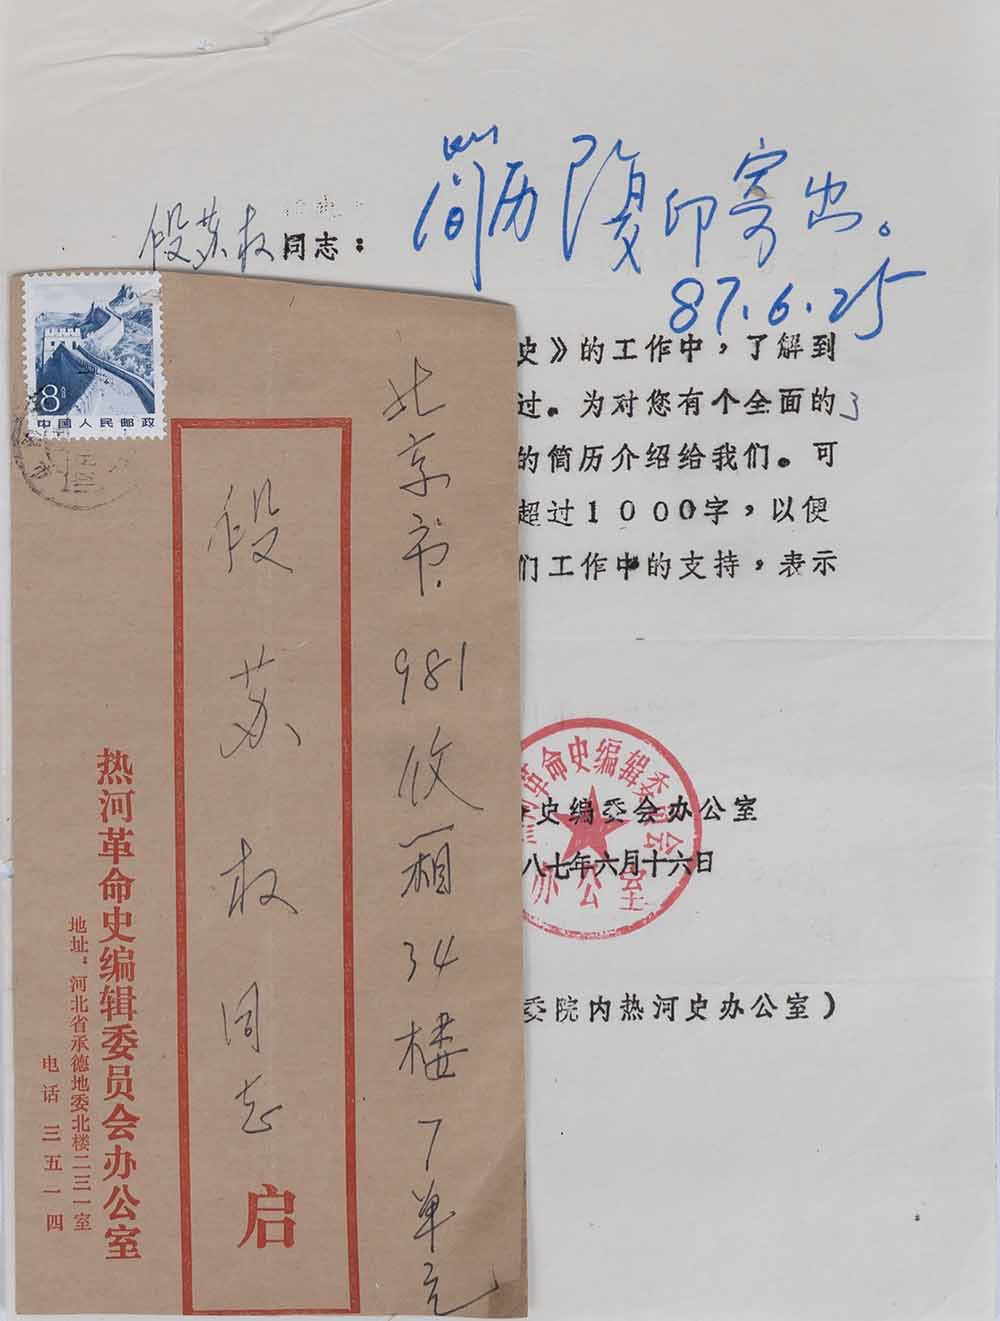 段苏权同志：
简历复印寄出。
87.6.25
史》的工作中，了解到
过。为对您有个全面的了
的简历介绍给我们。可
超过1000字，以便
们工作中的支持，表示
史编委会办公室
八七年六月十六日
革命史编辑委员会
办公室
委院内热河史办公室）
8
中国人民邮政
北京市981信箱34楼7单元
段苏权同志启
热河革命史编辑委员会办公室
地址：河北省承德地委北楼二三一室
电话三五一四